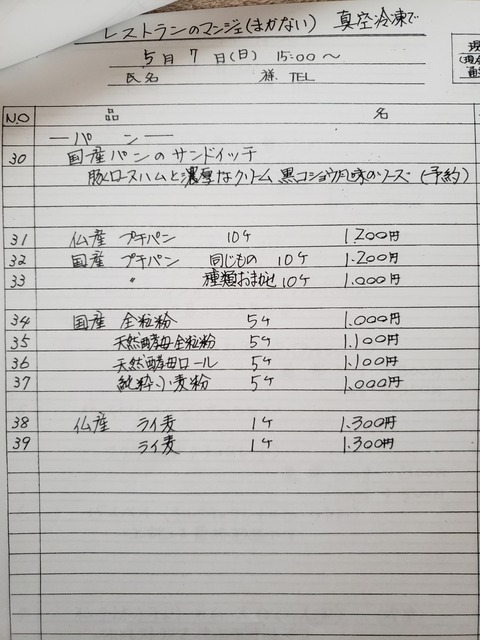 レストランのマンジェ(まかない) 真空冷凍で
5月 7 日(日) 15:00〜
氏名 様 TEL
N.O 品 名
— パ ン —
30 国産パンのサンドイッチ
豚ロースハムと濃厚なクリーム 黒コショウ風味のソース (予約)
31 仏産 プチパン 10ケ 1.200円
32 国産 プチパン 同じもの 10ケ 1.200円
33 〃 種類おまかせ 10ケ 1.000円
34 国産 全粒粉 5ケ 1.000円
35 天然酵母全粒粉 5ケ 1.100円
36 天然酵母ロール 5ケ 1.100円
37 純粋小麦粉 5ケ 1.000円
38 仏産 ライ麦 1ケ 1.300円
39 ライ麦 1ケ 1.300円